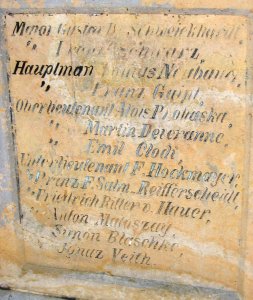 Major Gustav B. Schweickhardt,
" Leon. Schwarz,
Hauptman Julius Neuhaus,
" Franz Gaigl,
Oberlieutenant Alois Prohaska,
" Martin Devoranne,
" Emil Clodi,
Unterlieutenant F. Hockmayer,
" Prinz F. Salm-Reifferscheidt,
" Friedrich Ritter v. Hauer,
" Anton
" Simon Blaschke,
" Ignaz Veith